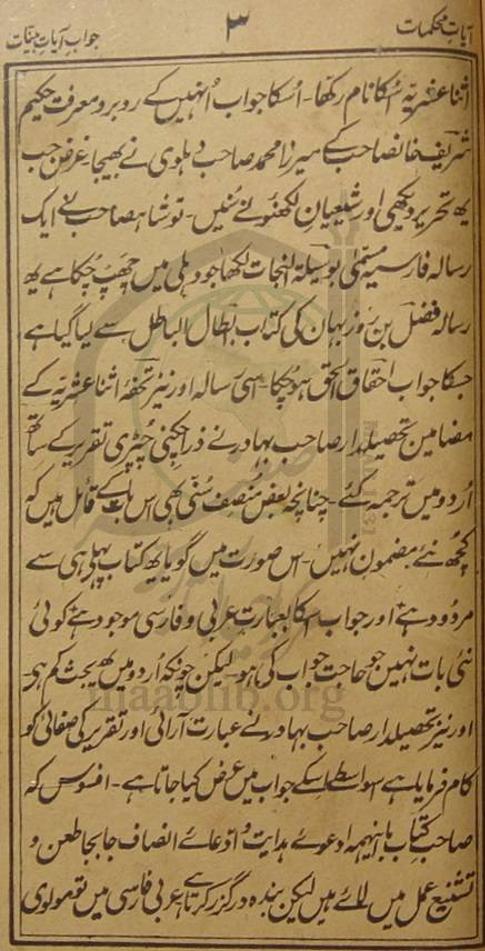 آیات محکمات
۳
جواب آیات بینات
اثنا عشریہ اسکا نام رکھا۔ اُسکا جواب اُنہیں کے روبرو معرفت حکیم
شریف خانصاحب کے میرزا محمد صاحب دہلوی نے بھیجا غرض جب
یھ تحریر دیکھی اور شیعیان لکھنؤ نے سُنیں۔ تو شاہصاحب نے ایک
رسالہ فارسیہ مسمّٰی بوسیلۃ النجات لکھا جو دہلی میں چھپ چُکا ہے یھ
رسالہ فضل بن روزبہان کی کتاب ابطال الباطل سے لیا گیا ہے
جسکا جواب احقاق الحق ہو چُکا۔ اسی رسالہ اور نیز تحفہ اثنا عشریّہ کے
مضامین تحصیلدار صاحب بہادر نے ذرا چکنی چُپڑی تقریر کے ساتھ
اُردو میں ترجمہ کئے۔ چنانچہ بعض مُنصِف سُنّی بھی اس بات کے قائل ہیں کہ
کچُھ نئے مضمون نہیں۔ اس صورت میں گویا یھ کتاب پہلی ہی سے
مردود ہے اور جواب اسکا بعبارت عربی و فارسی موجود ہے کوئی
نئی بات نہیں جو حاجت جواب کی ہو۔ لیکن چونکہ اُردو میں یھ بحث کم ہی۔
اور نیز تحصیلدار صاحب بہادر نے عبارت آرائی اور تقریر کی صفائی کو
کام فرمایا ہے اسواسطے اسکے جواب میں عرض کیا جاتا ہے۔ افسوس کہ
صاحب کتاب با اینہمہ ادعوے ہدایت و ادعائے انصاف جابجا طعن و
تشنیع عمل میں لائے ہیں لیکن بندہ درگزر کرتا ہے عربی فارسی میں تو مولوی
maablib.org